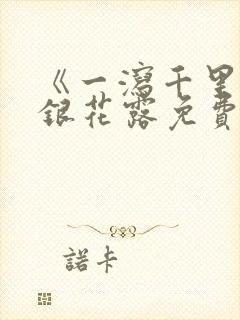 《一瀉千里
銀花露免費
諾卡